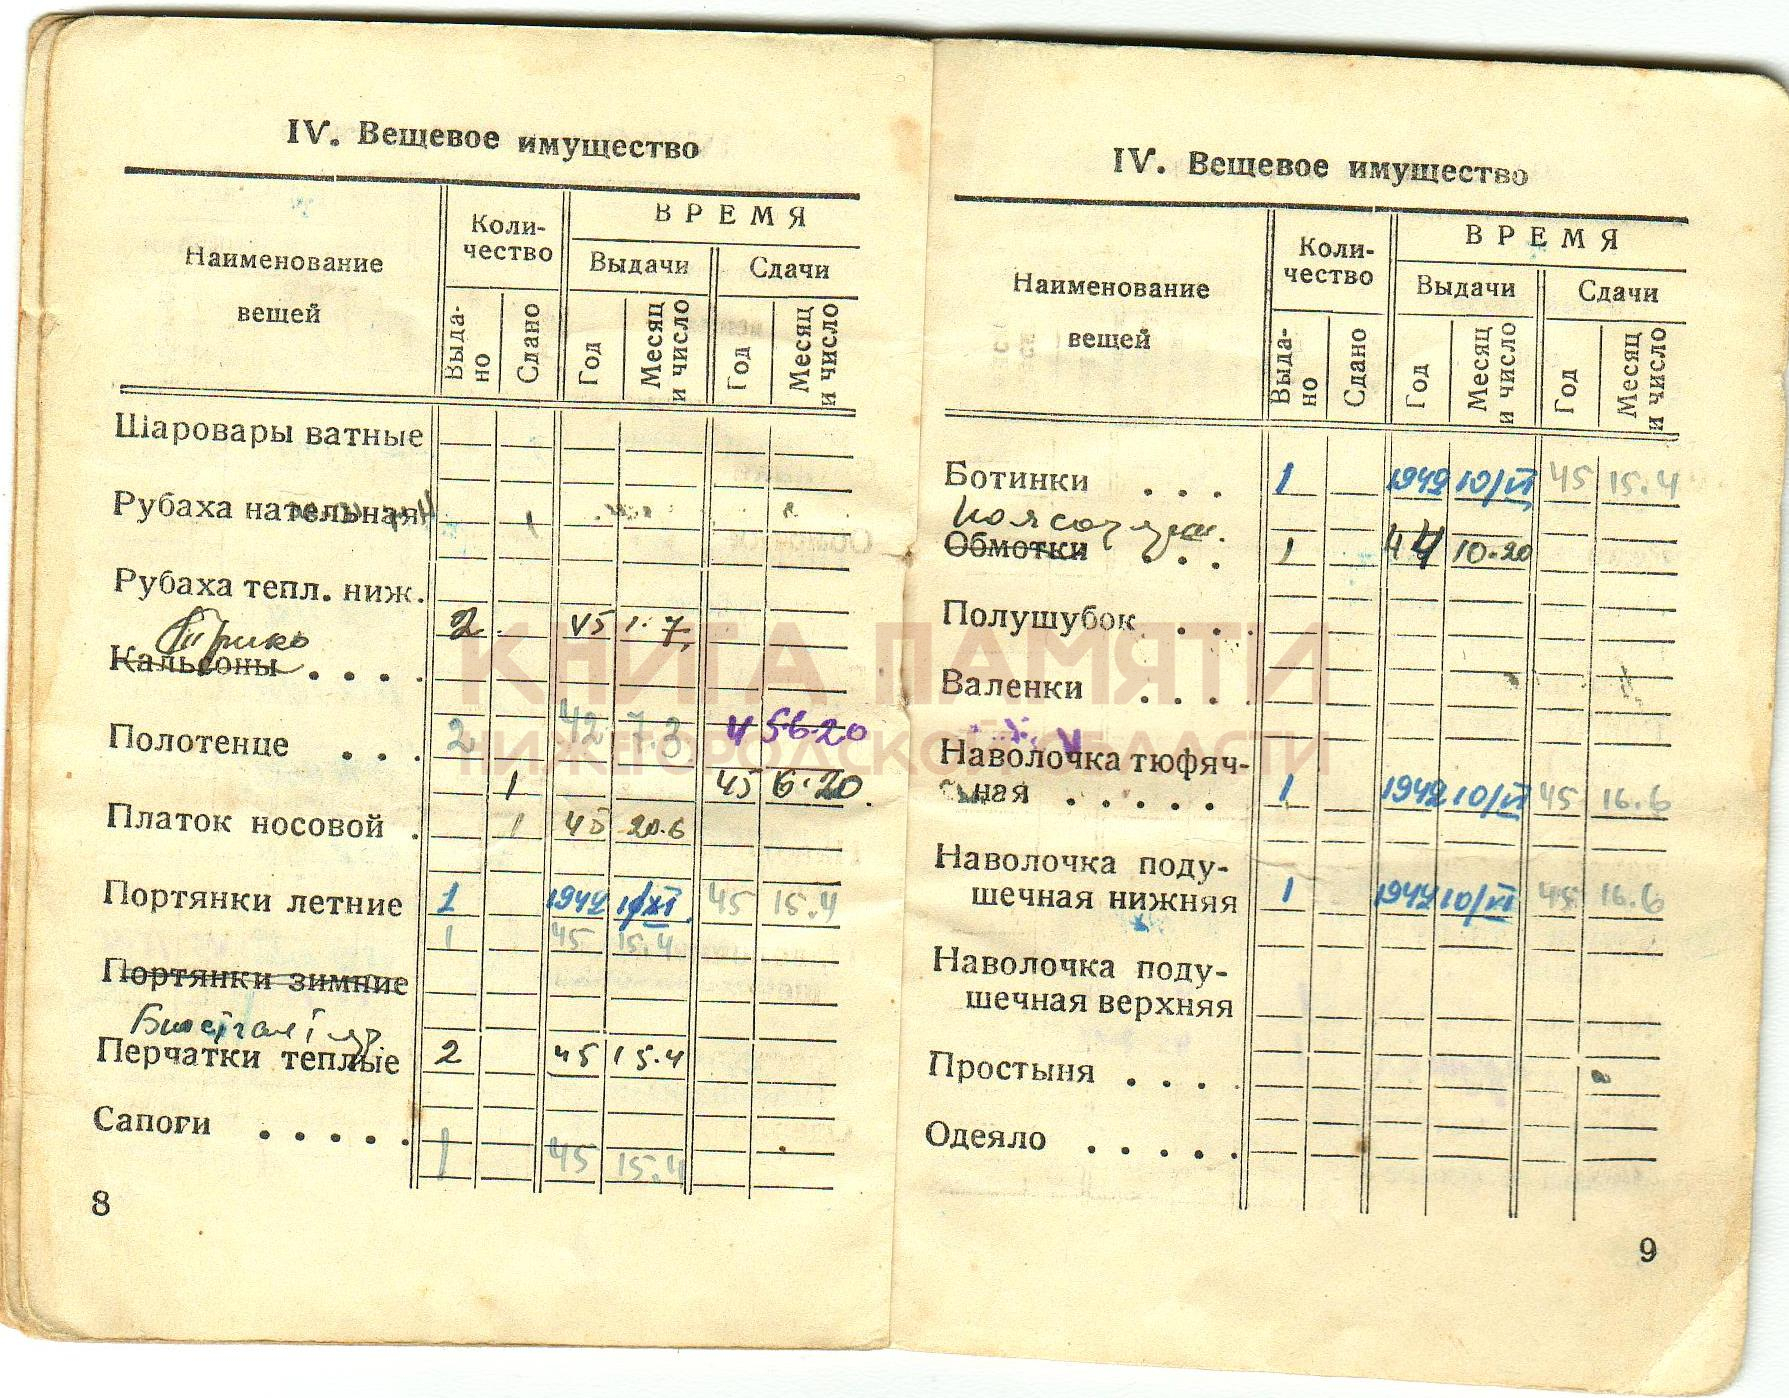 IV. Вещевое имущество
Наименование вещей
Коли-
чество
ВРЕМЯ
Выдачи
Сдачи
Выда-
но
Сдано
Год
Месяц
и число
Год
Месяц
и число
Шаровары ватные
Рубаха нательная
Рубаха тепл. ниж.
Трико 2 45 1.7
Кальсоны . . . .
Полотенце . . . 2 42 7.3 45 6-20
1 45 6.20
Платок носовой . 1 45 20.6
Портянки летние 1 1942 10/XI 45 15.4
1 45 15.4
Портянки зимние
Перчатки теплые 2 45 15.4
Сапоги . . . . .
1 45 15.4
8
IV. Вещевое имущество
Наименование вещей
Коли-
чество
ВРЕМЯ
Выдачи
Сдачи
Выда-
но
Сдано
Год
Месяц
и число
Год
Месяц
и число
Ботинки . . . 1 1942 10/VI 45 15.4
Обмотки . . . 1 44 10.20
Полушубок . . .
Валенки . . . .
Наволочка тюфяч-
ная . . . . . 1 1942 10/VI 45 16.6
Наволочка поду-
шечная нижняя 1 1942 10/VI 45 16.6
Наволочка поду-
шечная верхняя
Простыня . . . .
Одеяло . . . . .
9
КНИГА ПАМЯТИ
НИЖЕГОРОДСКОЙ ОБЛАСТИ